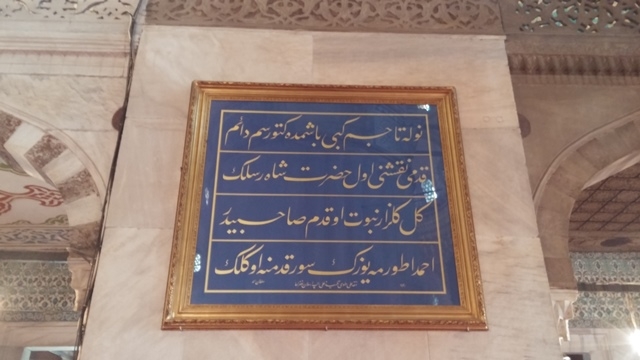 نوله تاجم كبى باشمده كتورسم دائم
قدمى نقشنى اول حضرت شاه رسلك
كل كلزار نبوت او قدم صاحبيدر
احمدا طورمه يوزك سور قدمنه او كلك